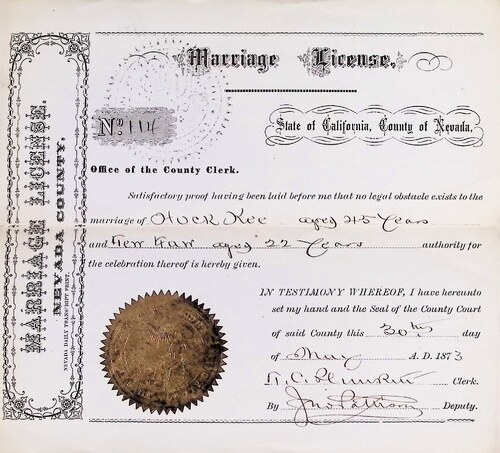 Marriage License.
MARRIAGE LICENSE.
NEVADA COUNTY.
NEVADA DAILY TRANSCRIPT PRINT.
No. 114
State of California, County of Nevada.
Office of the County Clerk.
Satisfactory proof having been laid before me that no legal obstacle exists to the
marriage of Huck Kee aged 45 Years
and aged 22 Years authority for
the celebration thereof is hereby given.
IN TESTIMONY WHEREOF, I have hereunto
set my hand and the Seal of the County Court
of said County this 30th day
of May A. D. 1873
Clerk.
By Jno Pattison Deputy.